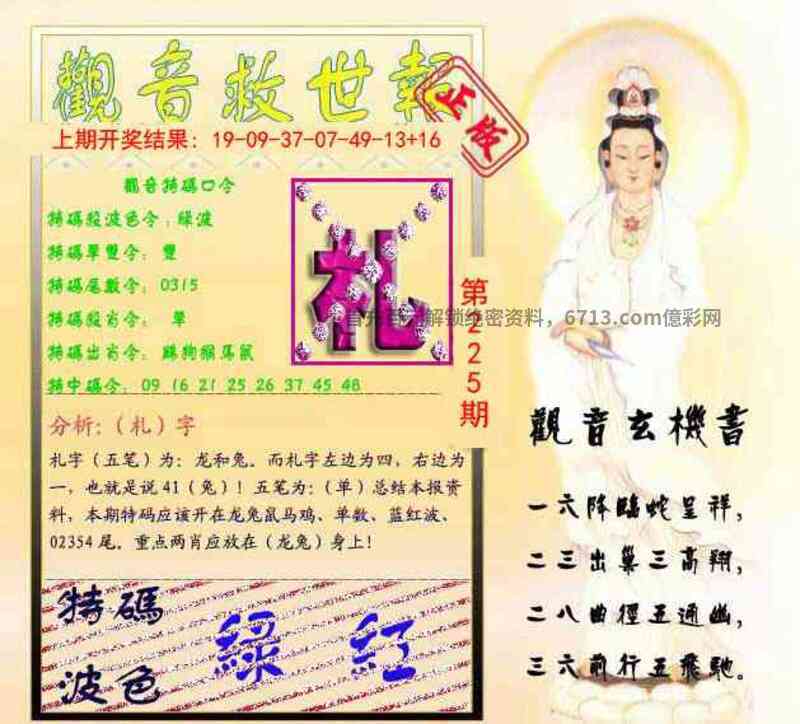 觀音救世報
正版
上期开奖结果：19-09-37-07-49-13+16
觀音特碼口令
特碼殺波色令：綠波
特碼單雙令：雙
特碼尾數令：0315
特碼殺肖令：單
特碼出肖令：雞狗猴馬鼠
特中碼令：09 16 21 25 26 37 45 48
札
第225期
解锁绝密资料，6713.com億彩网
分析:（札）字
札字（五笔）为：龙和兔。而札字左边为四，右边为
一，也就是说 41（兔）！五笔为：（单）总结本报资
料，本期特码应该开在龙兔鼠马鸡、单数、蓝红波、
02354 尾。重点两肖应放在（龙兔）身上！
特碼
波色
綠 紅
觀音玄機書
一六降臨蛇呈祥，
二三出巢三高翔，
二八曲徑五通幽，
三六前行五飛馳。